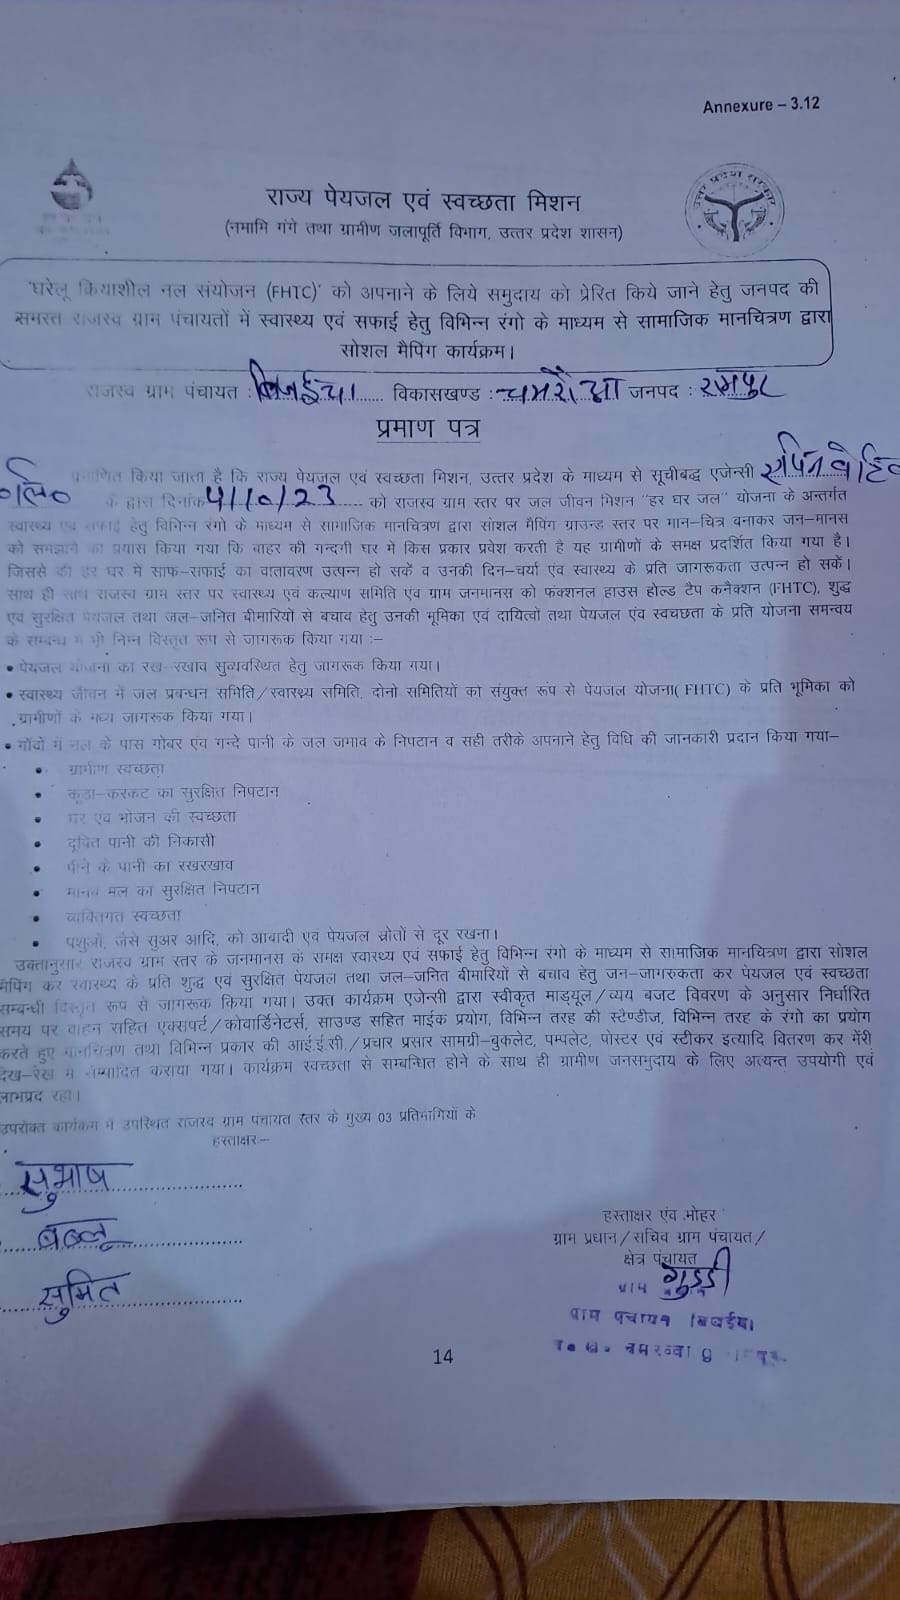 Annexure – 3.12
राज्य पेयजल एवं स्वच्छता मिशन
उत्तर प्रदेश सरकार
(नमामि गंगे तथा ग्रामीण जलापूर्ति विभाग, उत्तर प्रदेश शासन)
'घरेलू क्रियाशील नल संयोजन (FHTC)' को अपनाने के लिये समुदाय को प्रेरित किये जाने हेतु जनपद की
समस्त राजस्व ग्राम पंचायतों में स्वास्थ्य एवं सफाई हेतु विभिन्न रंगो के माध्यम से सामाजिक मानचित्रण द्वारा
सोशल मैपिंग कार्यक्रम।
राजस्व ग्राम पंचायत : ...... विकासखण्ड : चमरौआ जनपद : रामपुर
प्रमाण पत्र
प्रमाणित किया जाता है कि राज्य पेयजल एवं स्वच्छता मिशन, उत्तर प्रदेश के माध्यम से सूचीबद्ध एजेन्सी
के द्वारा दिनांक 4/10/23 को राजस्व ग्राम स्तर पर जल जीवन मिशन "हर घर जल" योजना के अन्तर्गत
स्वास्थ्य एवं सफाई हेतु विभिन्न रंगो के माध्यम से सामाजिक मानचित्रण द्वारा सोशल मैपिंग ग्राउन्ड स्तर पर मान–चित्र बनाकर जन–मानस
को समझाने का प्रयास किया गया कि बाहर की गन्दगी घर में किस प्रकार प्रवेश करती है यह ग्रामीणों के समक्ष प्रदर्शित किया गया है।
जिससे की हर घर में साफ–सफाई का वातावरण उत्पन्न हो सकें व उनकी दिन–चर्या एंव स्वास्थ्य के प्रति जागरूकता उत्पन्न हो सकें।
साथ ही साथ राजस्व ग्राम स्तर पर स्वास्थ्य एवं कल्याण समिति एंव ग्राम जनमानस को फंक्शनल हाउस होल्ड टैप कनैक्शन (FHTC), शुद्ध
एवं सुरक्षित पेयजल तथा जल–जनित बीमारियों से बचाव हेतु उनकी भूमिका एवं दायित्वों तथा पेयजल एंव स्वच्छता के प्रति योजना समन्वय
के सम्बन्ध में भी निम्न विस्तृत रूप से जागरूक किया गया :–
• पेयजल योजना का रख–रखाव सुव्यवस्थित हेतु जागरूक किया गया।
• स्वास्थ्य जीवन में जल प्रबन्धन समिति/स्वास्थ्य समिति, दोनो समितियों को संयुक्त रूप से पेयजल योजना( FHTC) के प्रति भूमिका को
ग्रामीणों के मध्य जागरूक किया गया।
• गाँवो में नल के पास गोबर एंव गन्दे पानी के जल जगाव के निपटान व सही तरीके अपनाने हेतु विधि की जानकारी प्रदान किया गया–
• ग्रामीण स्वच्छता
• कूड़ा–करकट का सुरक्षित निपटान
• घर एंव भोजन की स्वच्छता
• दूषित पानी की निकासी
• पीने के पानी का रखरखाव
• मानव मल का सुरक्षित निपटान
• व्यक्तिगत स्वच्छता
• पशुओं, जैसे सुअर आदि, को आबादी एंव पेयजल स्रोतों से दूर रखना।
उक्तानुसार राजस्व ग्राम स्तर के जनमानस के समक्ष स्वास्थ्य एवं सफाई हेतु विभिन्न रंगो के माध्यम से सामाजिक मानचित्रण द्वारा सोशल
मैपिंग कर स्वास्थ्य के प्रति शुद्ध एवं सुरक्षित पेयजल तथा जल–जनित बीमारियों से बचाव हेतु जन–जागरुकता कर पेयजल एवं स्वच्छता
सम्बन्धी विस्तृत रूप से जागरूक किया गया। उक्त कार्यक्रम एजेन्सी द्वारा स्वीकृत माड्यूल/व्यय बजट विवरण के अनुसार निर्धारित
समय पर वाहन सहित एक्सपर्ट/कोवार्डिनेटर्स, साउण्ड सहित माईक प्रयोग, विभिन्न तरह की स्टैण्डीज, विभिन्न तरह के रंगो का प्रयोग
करते हुए मानचित्रण तथा विभिन्न प्रकार की आई.ई.सी./प्रचार प्रसार सामग्री–बुकलेट, पम्पलेट, पोस्टर एवं स्टीकर इत्यादि वितरण कर मेरी
देख–रेख में सम्पादित कराया गया। कार्यक्रम स्वच्छता से सम्बन्धित होने के साथ ही ग्रामीण जनसमुदाय के लिए अत्यन्त उपयोगी एवं
लाभप्रद रहा।
उपरोक्त कार्यकम में उपस्थित राजस्व ग्राम पंचायत स्तर के मुख्य 03 प्रतिभागियों के
हस्ताक्षर:–
सुभाष
बब्लू
सुमित
हस्ताक्षर एंव मोहर
ग्राम प्रधान/सचिव ग्राम पंचायत/
क्षेत्र पंचायत
गुड्डी
14